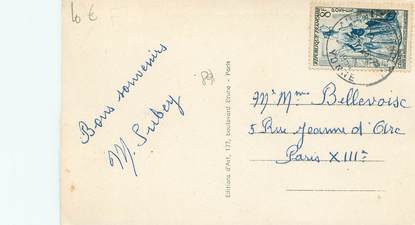 10 €
Bons souvenirs
M. Subey
89
Editions d'Art, 177, boulevard Brune - Paris
8F
POSTES
REPUBLIQUE FRANÇAISE
YONNE
Mr Mme Bellevoise
5 Rue Jeanne d'Arc
Paris XIIIe